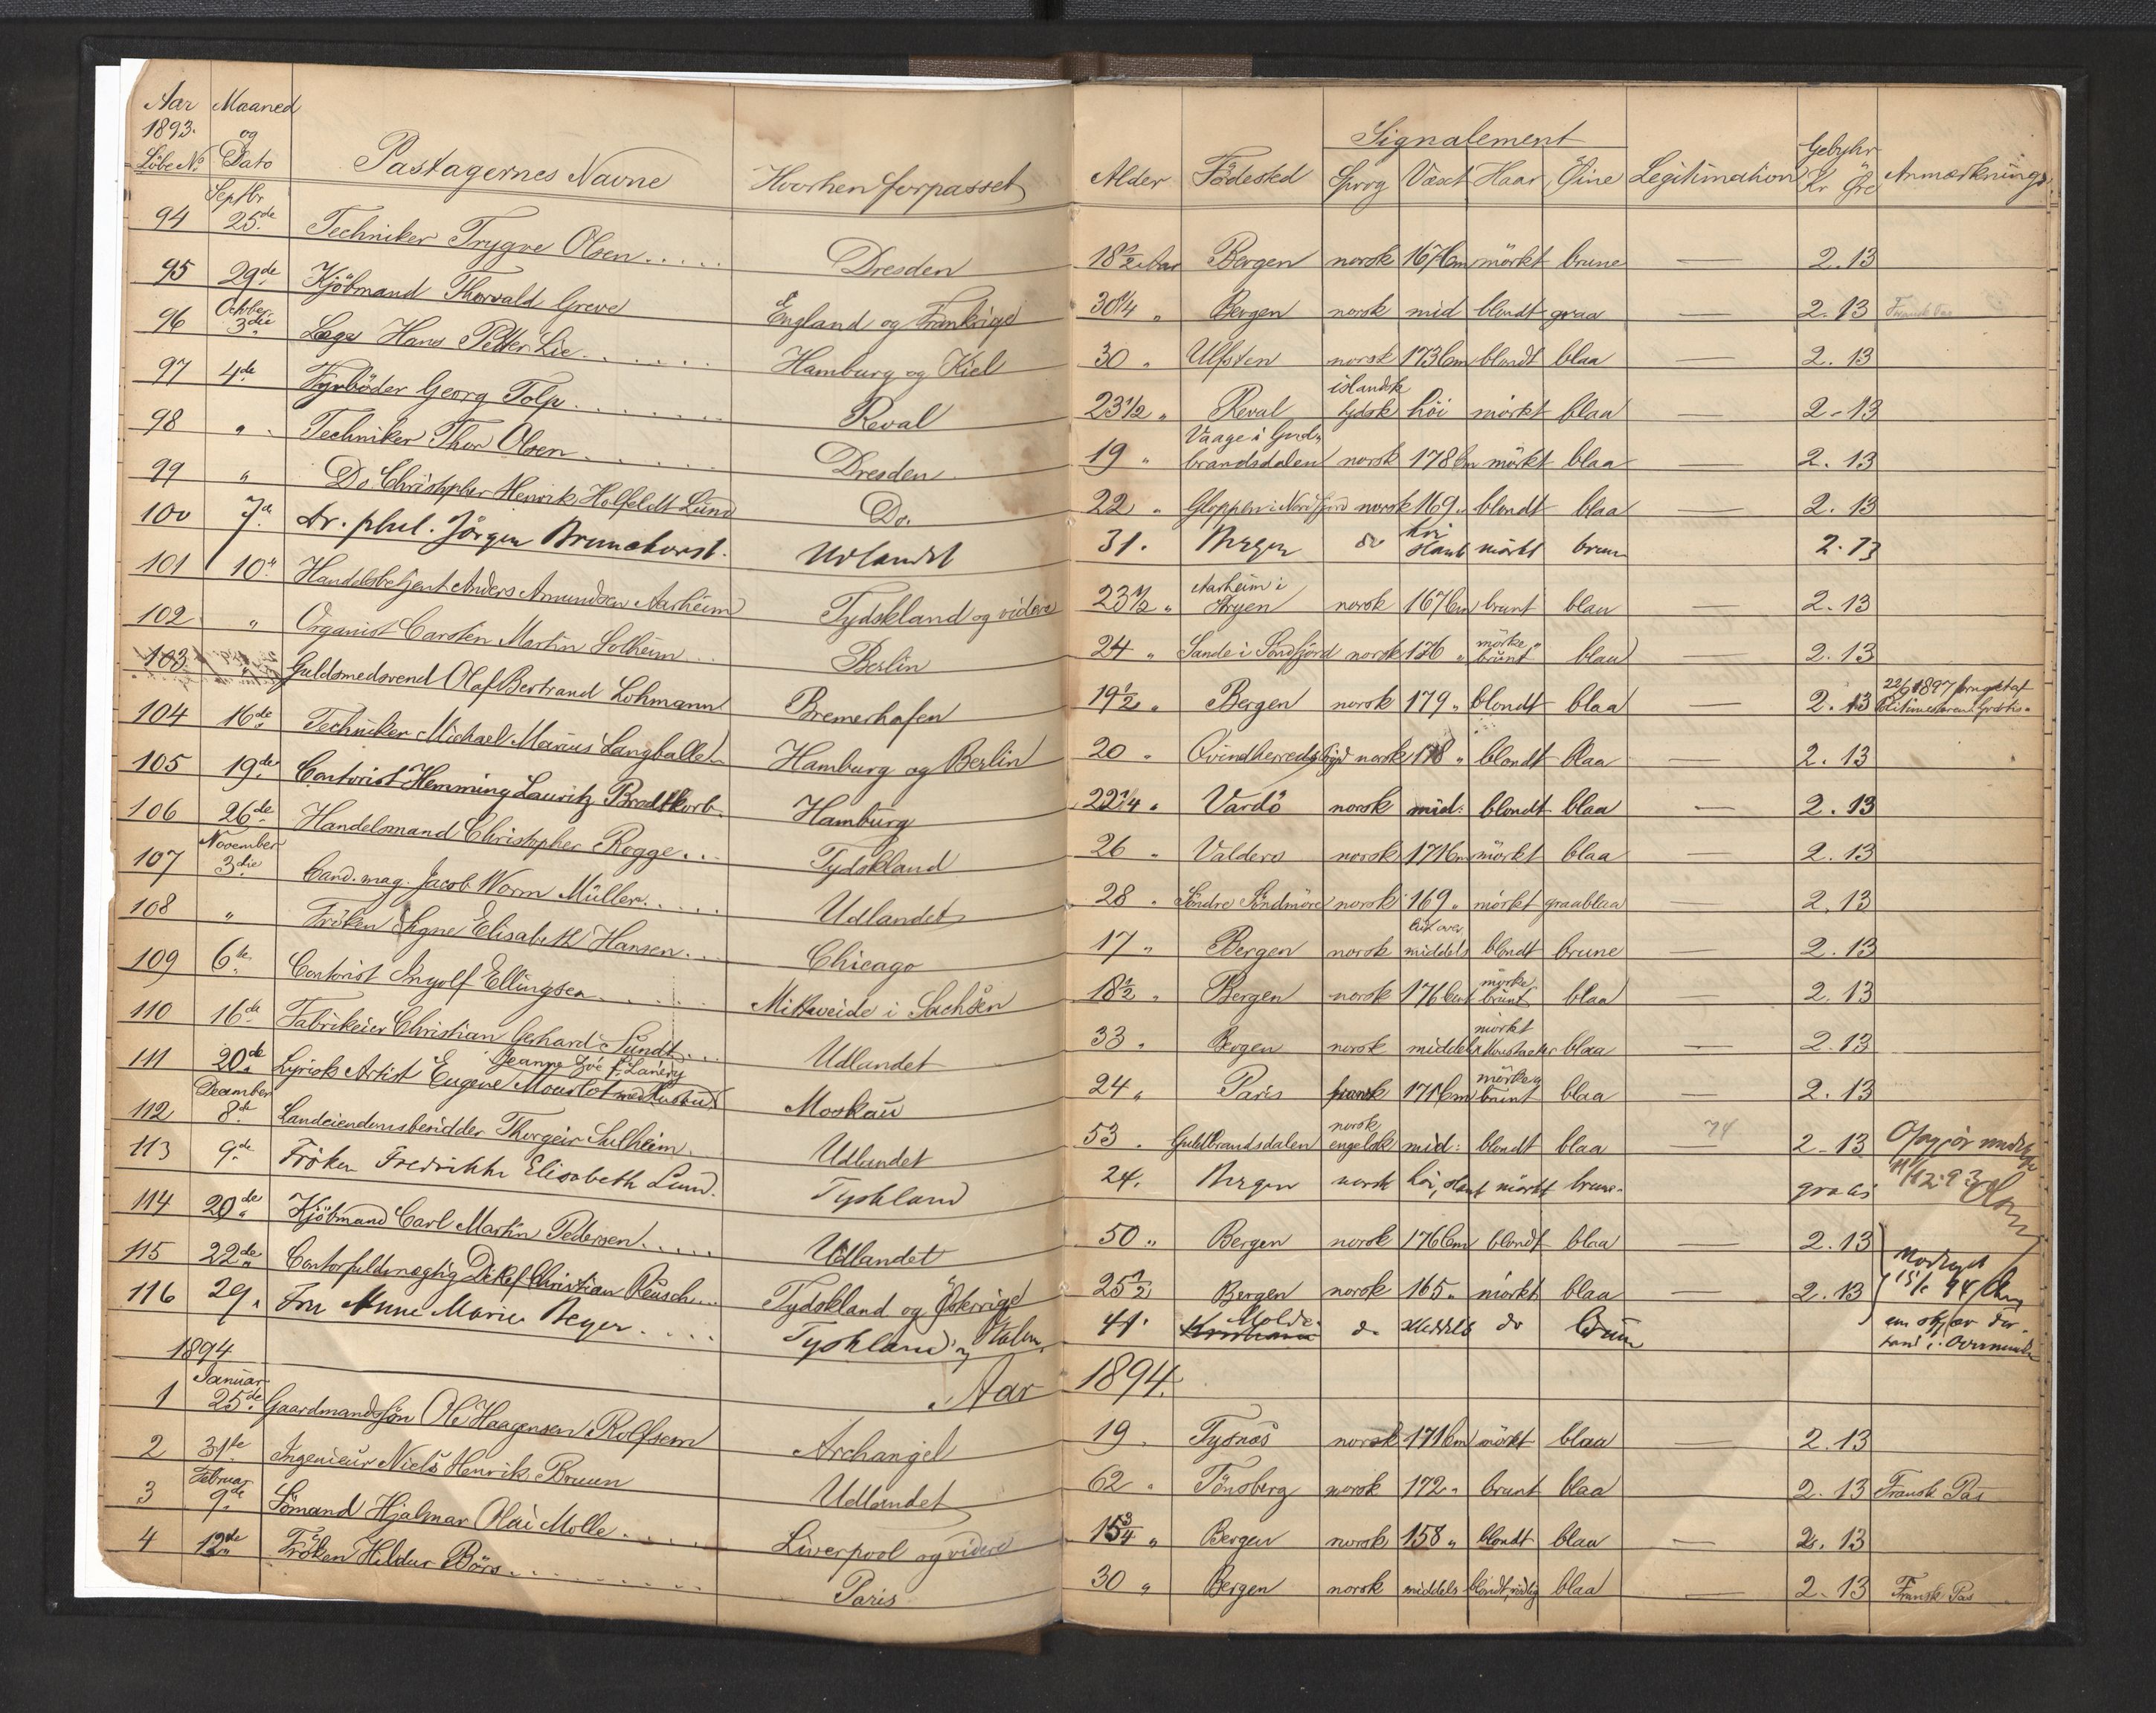 Aar 1893. Löbe No. Maaned og Dato Passagernes Navne Hvorhen forpasset Alder Födested Signalement Sprog Væxt Haar Öine Legitimation Gebyhr Kr Öre Anmærkninger
94 Septbr 25de Techniker Trygve Olsen..... Dresden 18½ Aar Bergen norsk 167 Cm mörkt brune — 2.13
95 29de Kjöbmand Thorvald Greve England og Frankrige 30¼ " Bergen norsk mid blondt graa — 2.13 Fransk Pas
96 Octber 3die Læge Hans Petter Lie...... Hamburg og Kiel 30 " Ulfsten norsk 173 Cm blondt blaa — 2.13
97 4de Fyrböder Georg Tolp....... Reval 23½ " Reval islandsk tydsk höi mörkt blaa — 2-13
98 " Techniker Thor Olsen...... Dresden 19 " Vaage i Gudbrandsdalen norsk 178 Cm mörkt blaa — 2.13
99 " Do. Christopher Henrik Holfeldt Lund Do. 22 " Gloppen i Nordfjord norsk 169 " blondt blaa — 2.13
100 7de Dr. phil. Jörgen Brunchorst. Udlandet 31. Bergen do höi slank mörkt brun 2.13
101 10" Handelsbetjent Anders Amundsen Aarheim Tydskland og videre 23½ " Aarheim i Stryen norsk 167 Cm brunt blaa — 2.13
102 " Organist Carsten Martin Solheim... Berlin 24 " Sande i Söndfjord norsk 176 " mörkebrunt blaa — 2.13
103 " Guldsmedsvend Olaf Bertrand Lohmann Bremerhafen 19½ " Bergen norsk 179 " blondt blaa — 2.13 22/9 1897
104 16de Techniker Michael Marius Langballe Hamburg og Berlin 20 " Qvindherred norsk 178 " blondt blaa — 2.13
105 19de Contorist Hemming Lauritz Bradtkorb. Hamburg 22¼ " Vardö norsk mid: blondt blaa — 2.13
106 26de Handelsmand Christopher Rogge... Tydskland 26 " Valders norsk 171 Cm mörkt blaa — 2.13
107 November 3die Cand. mag. Jacob Worm Müller..... Udlandet 28 " Söndre Söndmöre norsk 169 " mörkt graablaa — 2.13
108 " Fröken Signe Elisabeth Hansen... Chicago 17 " Bergen norsk lidt over middels blondt brune — 2.13
109 6te Contorist Ingolf Ellingsen....... Mittweida i Sachsen 18½ " Bergen norsk 176 Cm mörkebrunt blaa — 2.13
110 16de Fabrikeier Christian Gerhard Sundt... Udlandet 33 " Bergen norsk middels mörkt blaa — 2.13
111 20de Lyrisk Artist Eugene Mourlot med Hustru Jeanne Zoé f. Lanery Moskau 24 " Paris fransk 171 Cm mörkebrunt blaa — 2.13
112 December 8de Landeiendomsbesidder Thorgeir Sulheim. Udlandet 53 " Guldbrandsdalen norsk engelsk mid: blondt blaa — 74 2-13 Opgjör
113 9de Fröken Fredrikke Elisabeth Lund. Tyskland 24. Bergen norsk höi, slank mörkt brune. gratis 11/12.93
114 20de Kjöbmand Carl Martin Pedersen..... Udlandet 50 " Bergen norsk 176 Cm blondt blaa — 2.13
115 22de Contorfuldmægtig Ditlef Christian Reusch... Tydskland og Österrige 25½ Bergen norsk 165 " mörkt blaa — 2.13 Modtaget
116 29. Fru Anne Marie Beyer..... Tyskland og Italien 41. Molde do Middels do brune
1894 Aar 1894.
1 Januar 25de Gaardmandssön Ole Haagensen Rolfsem Archangel 19 " Tysnæs norsk 171 Cm mörkt blaa — 2.13
2 31te Ingenieur Niels Henrik Bruun Udlandet 62 " Tönsberg norsk 172 " brunt blaa 2.13 Fransk Pas
3 Februar 9de Sömand Hjalmar Olai Molle..... Liverpool og videre 15¾ " Bergen norsk 158 " blondt blaa — 2.13
4 12de Fröken Hildur Börs......... Paris 30 " Bergen norsk middels blondt, rödlig blaa — 2-13 Fransk Pas